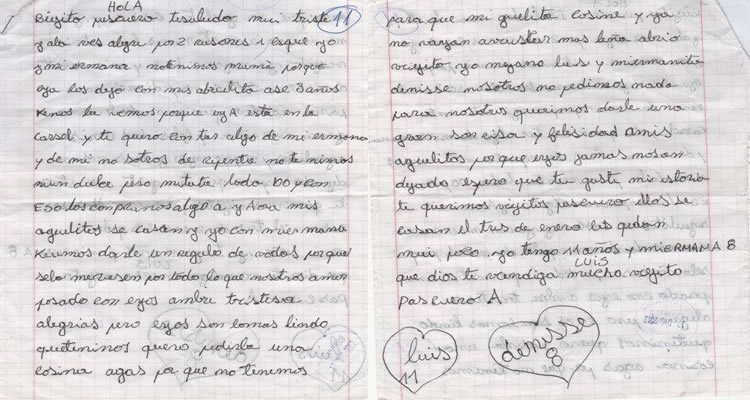 HOLA
Biegito pascuero tesaludo mui triste
y ala ves algri por 2 rasones 1 esque yo
y mi ermana notenimos mama porque
eya los dejo con mis abuelita ase 3 años
Kenos la vemos porque eyA esta en la
carsel y te quiro con tar algo de mi ermana
y de mi no sotros de repente no te nimos
niun dulce pero mitata todo DO y con
Eso los conpramos algo a y Aora mis
aguelitos se casan y yo con miermana
Kerimos darle un regalo de vodas por que
selo meresen por todo lo que nosotros amos
pasado con eyos ambre tristesa
alegrias pero eyos son lomas lindo
quetenimos quero pedirla una
cosina agas pa que no tenemos
11
para que mi guelita cosine y ya
no vayan arrustar mas leña abrio
viejito yo meyamo luis y miermanita
denisse nosotros no pedimos nada
para nosotros querimos darle una
gran sonrisa y felisidad Amis
aguelitos por que eyos jamas nosan
dejado espero que te guste mi istoria
te querimos viejitos pascuero ellos se
casan el tres de enero les quedan
mui poco yo tengo 11 años y miERMANA 8
LUIS
que dios te vendiga mucho viejito
pascuero A
luis
11
denisse
8